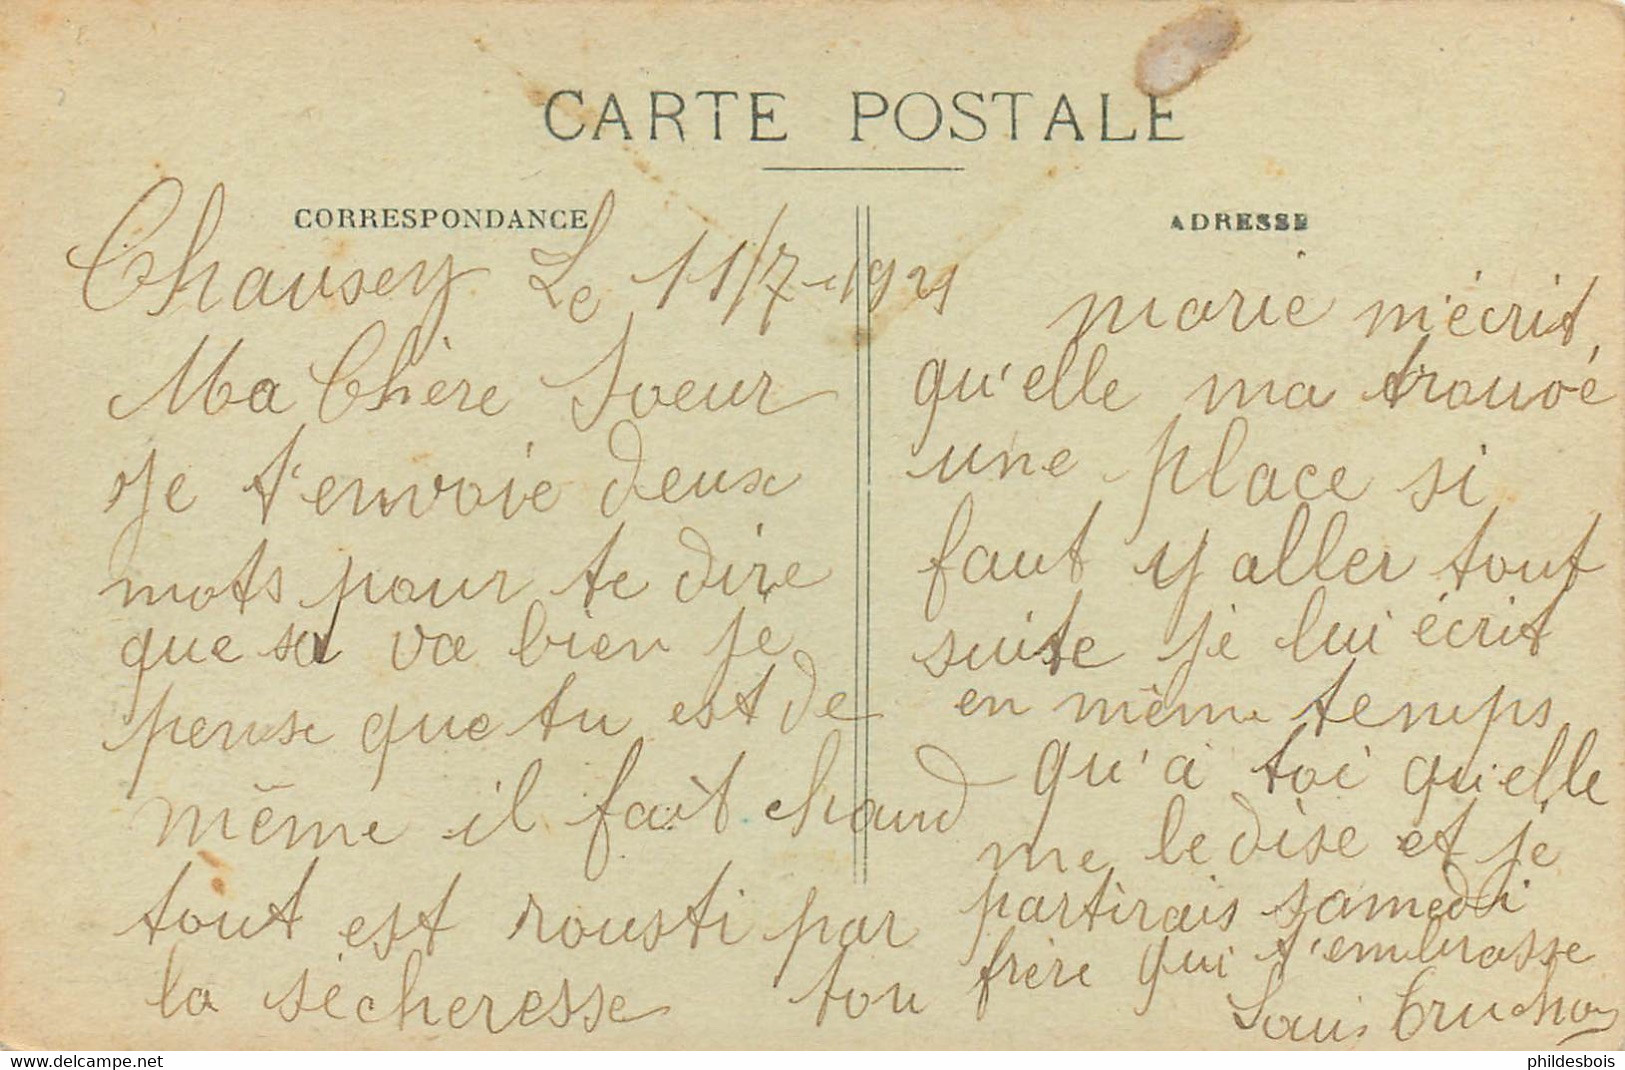 CARTE POSTALE
CORRESPONDANCE
Chausey Le 11/7-1921
Ma Chère Soeur
Je t'envoie deux
mots pour te dire
que sa va bien je
pense que tu est de
même il fait chaud
tout est rousti par
la sécheresse ton
ADRESSE
marie m'écrit
qu'elle ma trouvé
une place si
faut y aller tout
suite je lui écrit
en même temps
qu'a toi qu'elle
me le dise et je
partirais samedi
frère qui t'embrasse
Louis Truchon
delcampe.net
phildesbois